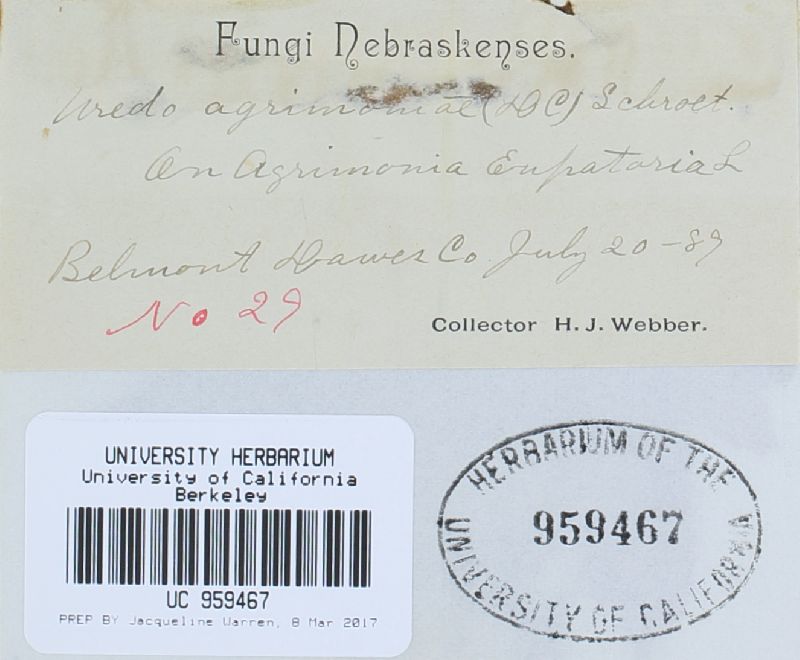 Fungi Nebraskenses.
Uredo agrimoniae (DC) Schroet.
On Agrimonia Eupatoria L
Belmont Dawes Co July 20-89
No 29
Collector H. J. Webber.
UNIVERSITY HERBARIUM
University of California
Berkeley
UC 959467
PREP BY Jacqueline Warren, 8 Mar 2017
HERBARIUM OF THE
959467
UNIVERSITY OF CALIFORNIA